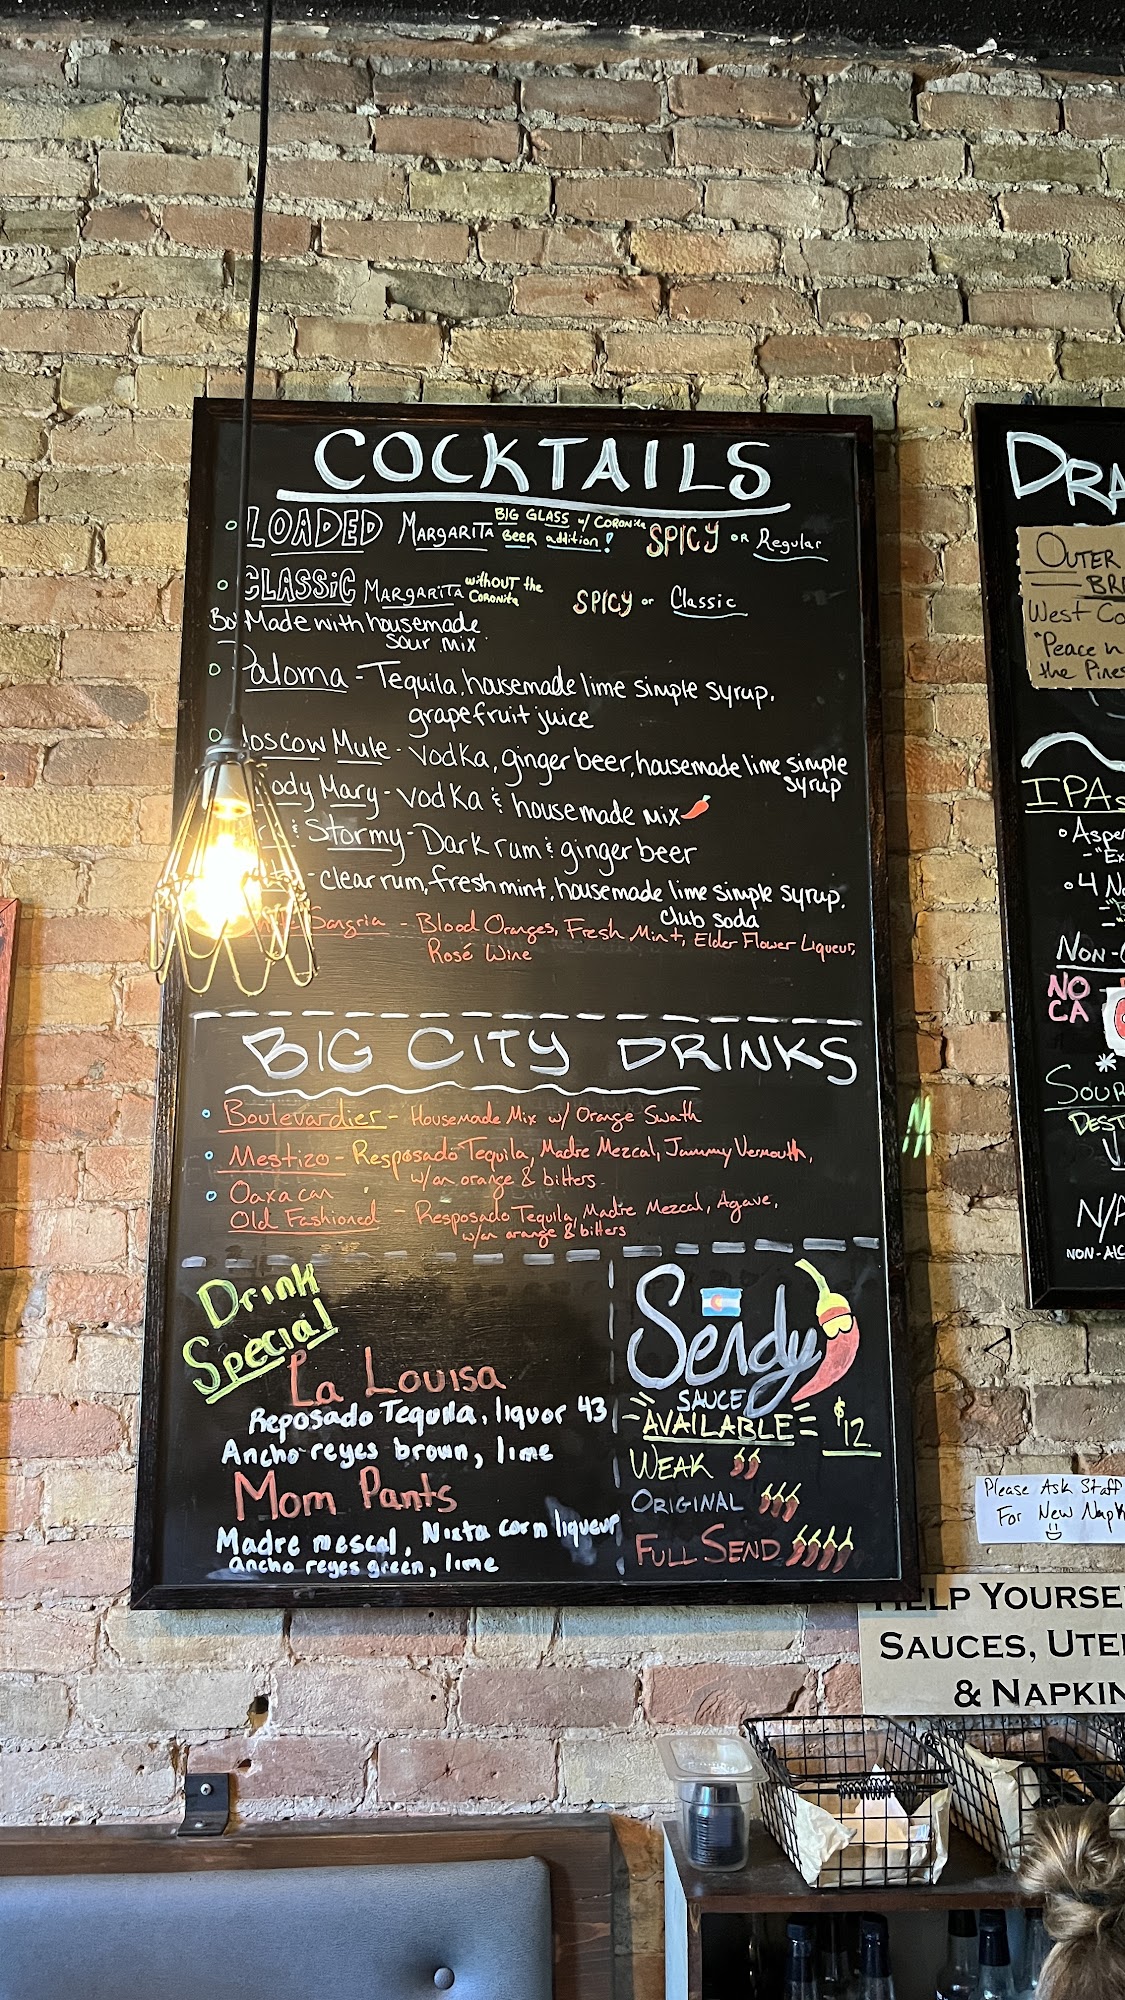 COCKTAILS
LOADED MARGARITA BIG GLASS w/ CORONita BEER addition! SPICY OR Regular
CLASSIC MARGARITA withOUT the CORONita SPICY or Classic
Made with housemade
sour mix
Paloma - Tequila, housemade lime simple syrup,
grapefruit juice
Moscow Mule - vodka, ginger beer, housemade lime simple
syrup
Mary - vodka & housemade mix
& Stormy - Dark rum & ginger beer
- clear rum, fresh mint, housemade lime simple syrup,
club soda
Sangria - Blood Oranges, Fresh Mint, Elder Flower Liqueur,
Rosé Wine
BIG CITY DRINKS
Boulevardier - Housemade Mix w/ Orange Swath
Mestizo - Resposado Tequila, Madre Mezcal, Jammy Vermouth,
w/an orange & bitters
Oaxacan
Old Fashioned - Resposado Tequila, Madre Mezcal, Agave,
w/an orange & bitters
Drink
Special
La Louisa
Reposado Tequila, liquor 43
Ancho reyes brown, lime
Mom Pants
Madre mescal, Nixta corn liqueur
ancho reyes green, lime
Sendy
SAUCE
AVAILABLE $12
WEAK
ORIGINAL
FULL SEND
DRA
OUTER
BRE
West Co
"Peace n
the Pines
IPAs
Aspe
4 No
NON-
NO
CA
SOUR
DEST
N/A
NON-ALC
M
Please Ask Staff
For New Napk
HELP YOURSE
SAUCES, UTE
& NAPKIN